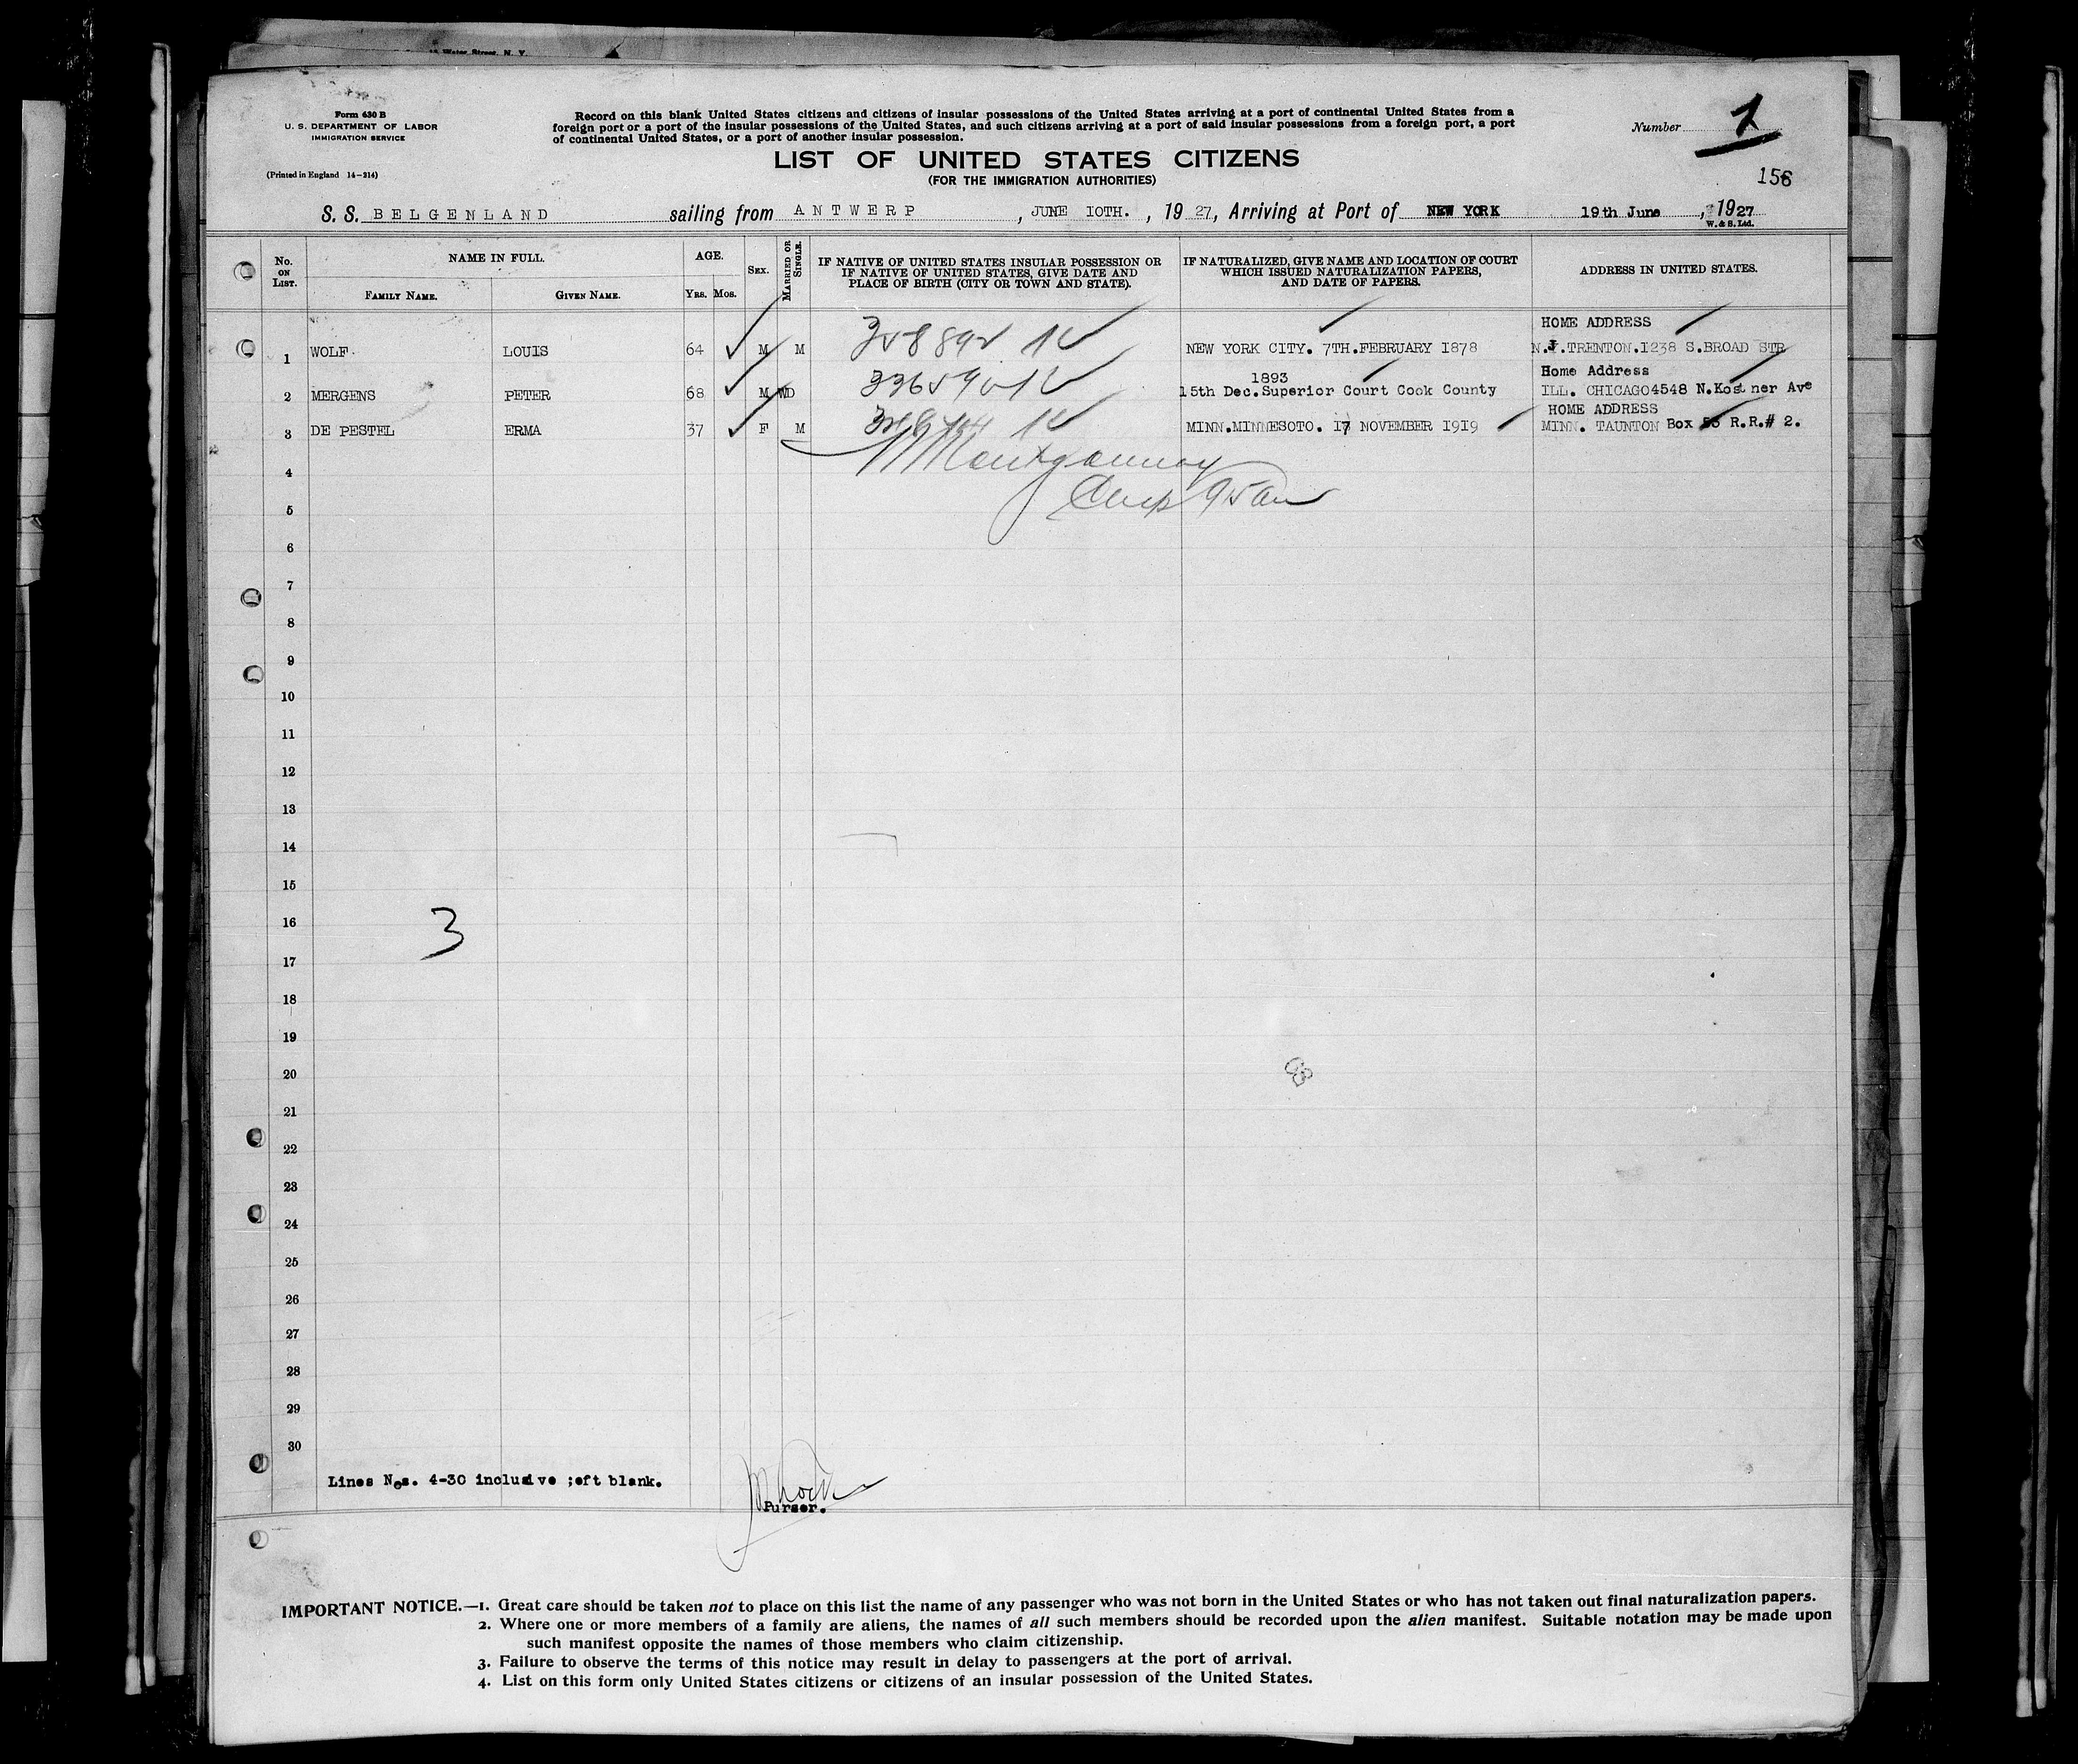 Water Street, N. Y.
Form 430 B
U. S. DEPARTMENT OF LABOR
IMMIGRATION SERVICE
(Printed in England 14-214)
Record on this blank United States citizens and citizens of insular possessions of the United States arriving at a port of continental United States from a
foreign port or a port of the insular possessions of the United States, and such citizens arriving at a port of said insular possessions from a foreign port, a port
of continental United States, or a port of another insular possession.
Number 1
LIST OF UNITED STATES CITIZENS
(FOR THE IMMIGRATION AUTHORITIES)
156
S. S. BELGENLAND sailing from ANTWERP, JUNE IOTH., 19 27, Arriving at Port of NEW YORK 19th June, 1927
W. & S. Ltd.
No. ON LIST.
NAME IN FULL.
FAMILY NAME.
GIVEN NAME.
AGE.
YRS. MOS.
SEX.
MARRIED OR SINGLE.
IF NATIVE OF UNITED STATES INSULAR POSSESSION OR
IF NATIVE OF UNITED STATES, GIVE DATE AND
PLACE OF BIRTH (CITY OR TOWN AND STATE).
IF NATURALIZED, GIVE NAME AND LOCATION OF COURT
WHICH ISSUED NATURALIZATION PAPERS,
AND DATE OF PAPERS.
ADDRESS IN UNITED STATES.
HOME ADDRESS
1 WOLF. LOUIS 64 M M NEW YORK CITY. 7TH.FEBRUARY I878 N.J.TRENTON.I238 S.BROAD STR
1893 Home Address
2 MERGENS PETER 68 M WD 15th Dec.Superior Court Cook County ILL. CHICAGO4548 N.Kostner Ave
HOME ADDRESS
3 DE PESTEL ERMA 37 F M MINN.MINNESOTO. I7 NOVEMBER I9I9 MINN. TAUNTON Box R.R.# 2.
Montgomery
4
5
6
7
8
9
10
11
12
13
14
15
16
3
17
18
19
20
21
22
23
24
25
26
27
28
29
30
Lines Nos. 4-30 inclusive ;eft blank.
Purser.
IMPORTANT NOTICE.—1. Great care should be taken not to place on this list the name of any passenger who was not born in the United States or who has not taken out final naturalization papers.
2. Where one or more members of a family are aliens, the names of all such members should be recorded upon the alien manifest. Suitable notation may be made upon
such manifest opposite the names of those members who claim citizenship.
3. Failure to observe the terms of this notice may result in delay to passengers at the port of arrival.
4. List on this form only United States citizens or citizens of an insular possession of the United States.